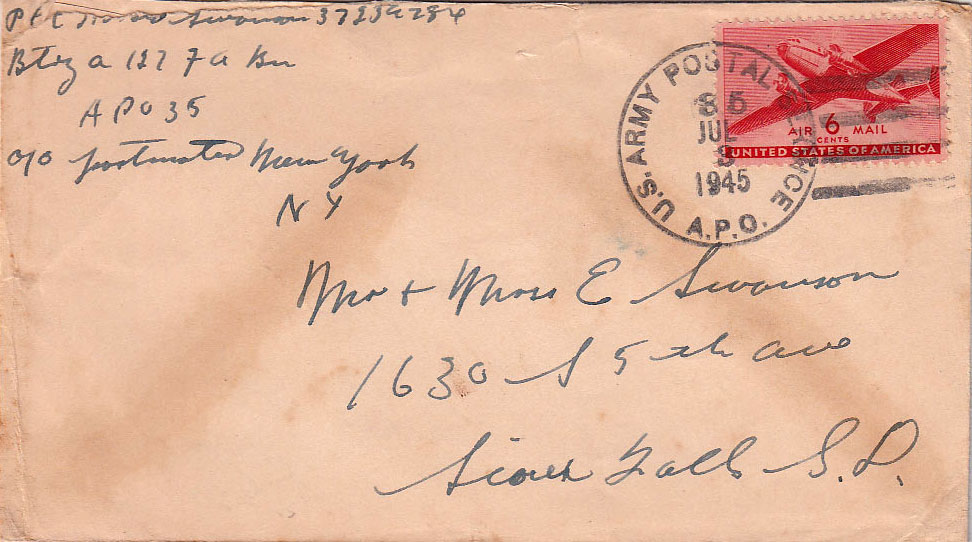 Pfc Swanson
Btry a 127 F a Bn
APO 35
c/o Postmaster New York
NY
U.S. ARMY POSTAL SERVICE
JUL
1945
A.P.O.
AIR 6 MAIL
CENTS
UNITED STATES OF AMERICA
Mr + Mrs E Swanson
1630 S 5th ave
Sioux Falls S.D.